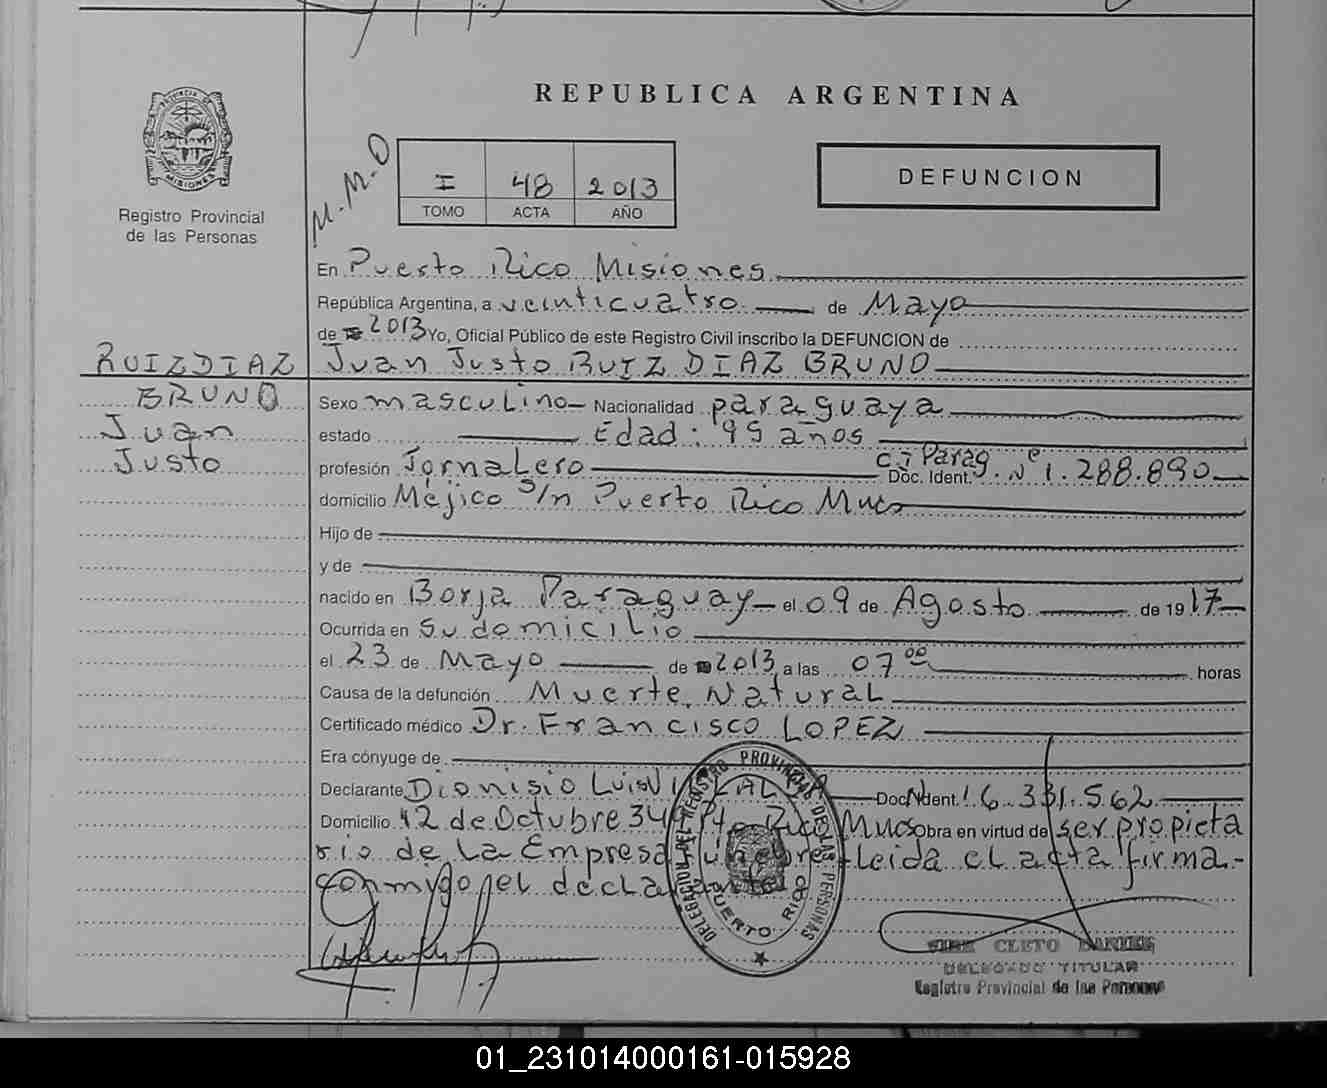 REPUBLICA ARGENTINA
PROVINCIA DE
MISIONES
Registro Provincial
de las Personas
M.M.O
I 48 2013
TOMO ACTA AÑO
DEFUNCION
En Puerto Rico Misiones
República Argentina, a veinticuatro de Mayo
de 2013 Yo, Oficial Público de este Registro Civil inscribo la DEFUNCION de
RUIZ DIAZ
BRUNO
Juan
Justo
Juan Justo RUIZ DIAZ BRUNO
Sexo masculino Nacionalidad paraguaya
estado Edad: 95 años
profesión Jornalero Doc. Ident. C.I Parag. Nº 1.288.890
domicilio Méjico S/n Puerto Rico Mnes
Hijo de
y de
nacido en Borja Paraguay el 09 de Agosto de 1917
Ocurrida en Su domicilio
el 23 de Mayo de 2013 a las 07 00 horas
Causa de la defunción Muerte Natural
Certificado médico Dr. Francisco LOPEZ
Era cónyuge de
Declarante Dionisio Luis Doc. Ident. 16.331.562
Domicilio 12 de Octubre 34 Pto Rico Mnes Obra en virtud de ser propieta
rio de La Empresa Fúnebre Leida el acta firma
conmigo el declarante
DELEGACION DEL REGISTRO PROVINCIAL DE LAS PERSONAS
PUERTO RICO
CLETO
DELEGADO TITULAR
Registro Provincial de las Personas
01_231014000161-015928